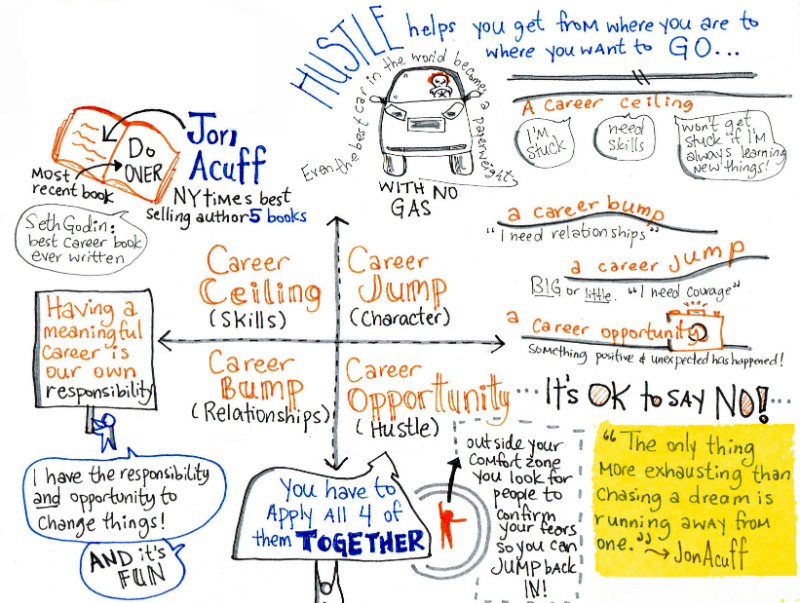 HUSTLE helps you get from where you are to
where you want to GO...
Even the best car in the world becomes a paperweight
WITH NO
GAS
A career ceiling
I'M
stuck
need
skills
won't get
stuck if I'm
always learning
new things!
Do
OVER
Jon
Acuff
Most
recent book
NYtimes best
selling author 5 books
Seth Godin:
best career book
ever written
a career bump
"I need relationships"
a career JUMP
BIG or little. "I need courage"
a career opportunity
something positive & unexpected has happened!
Career
Ceiling
(Skills)
Career
Jump
(Character)
Career
Bump
(Relationships)
Career
Opportunity
(Hustle)
Having a
meaningful
career is
our own
responsibility
I have the responsibility
and opportunity to
change things!
AND it's
FUN
You have to
Apply All 4 of
them TOGETHER
outside your
comfort zone
you look for
people to
confirm
your fears
so you can
JUMP back
IN!
... It's OK to SAY NO! ...
"The only thing
more exhausting than
chasing a dream is
running away from
one." → Jon Acuff